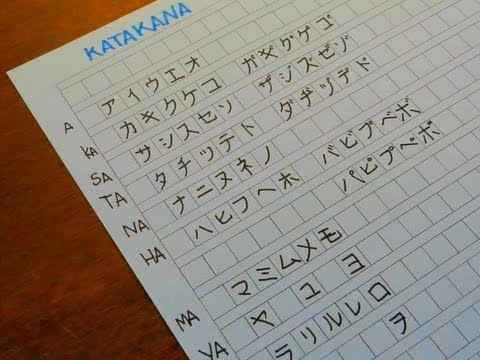 KATAKANA
A アイウエオ
KA カキクケコ ガギグゲゴ
SA サシスセソ ザジズゼゾ
TA タチツテト ダヂヅデド
NA ナニヌネノ
HA ハヒフヘホ バビブベボ
パピプペポ
MA マミムメモ
YA ヤ ユ ヨ
ラリルレロ ヲ